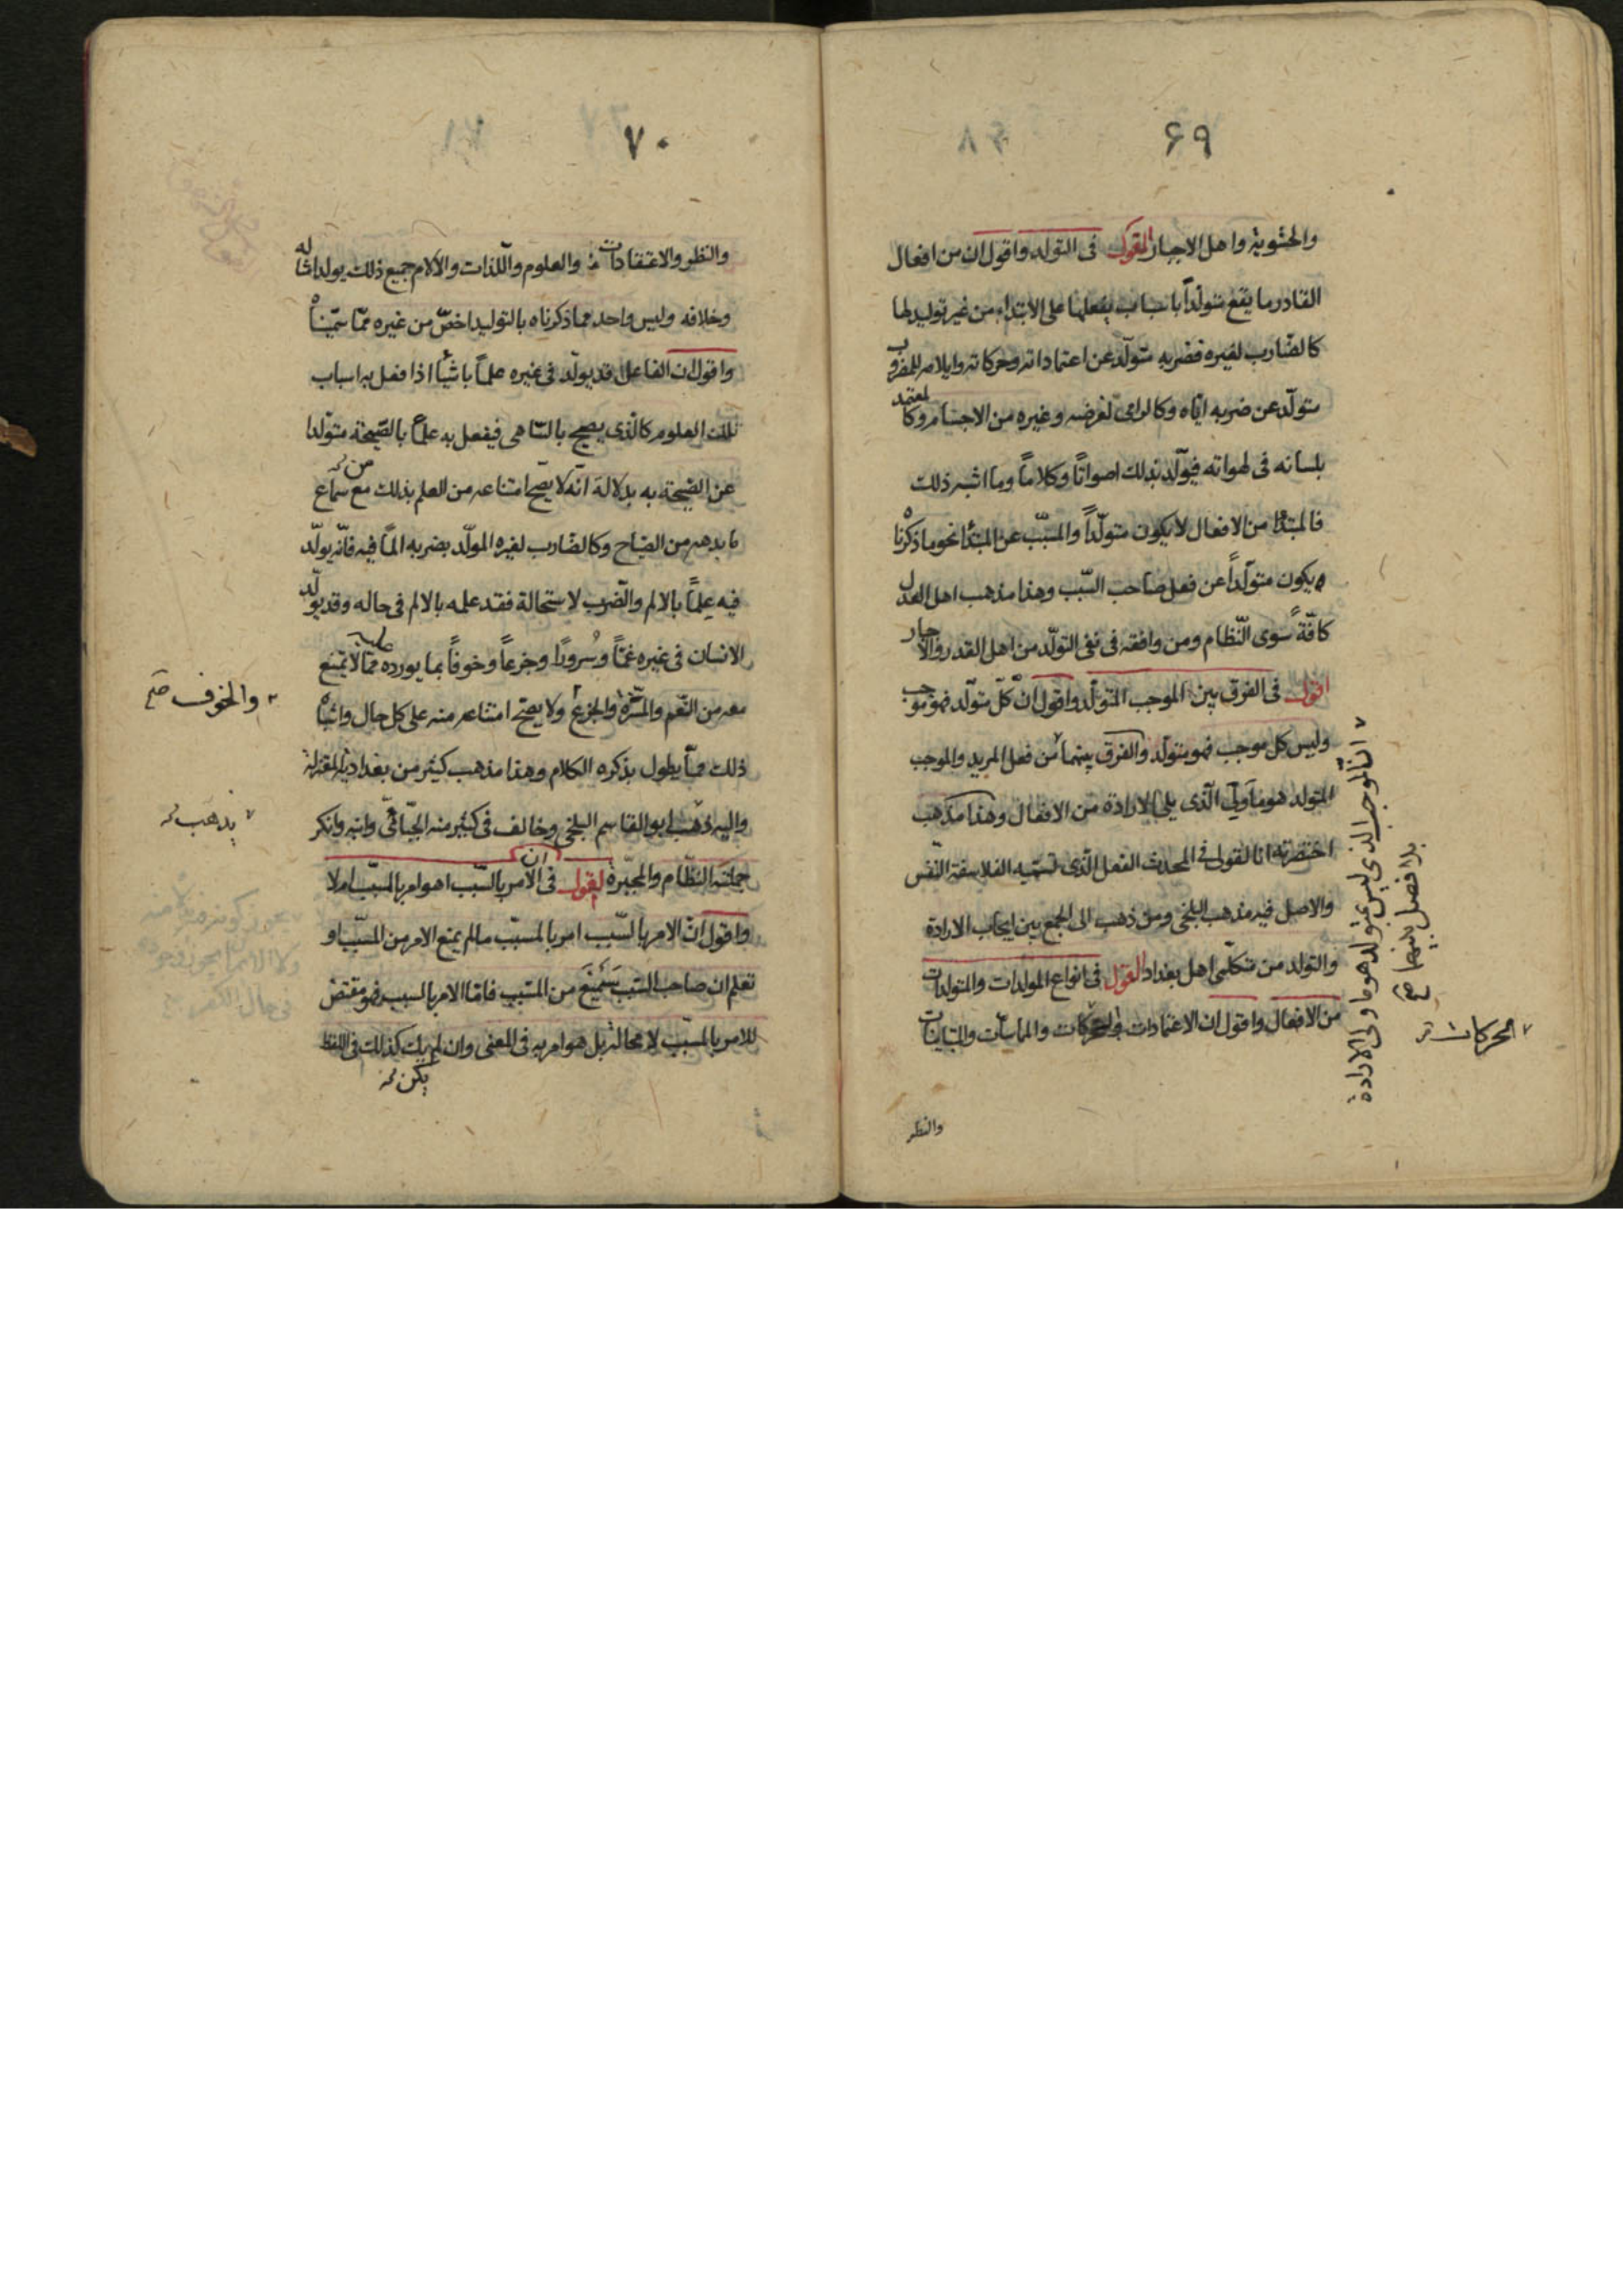 ۶۹
والحشوية واهل الاجبار القول فى التولد واقول ان من افعال
القادر ما يقع متولداً باسباب يفعلها على الابتداء من غير توليد لها
كالضارب لغيره فضربه متولّد عن اعتماداته وحركاته وايلامه للمضروب
متولّد عن ضربه ايّاه وكالرامى لغرضه وغيره من الاجسام وكالمعتمد
بلسانه فى لهواته فيولّد بذلك اصواتاً وكلاماً وما اشبه ذلك
فالمبتدأ من الافعال لا يكون متولّداً والمسبّب عن المبتدأ نحو ما ذكرناه
يكون متولّداً عن فعل صاحب السّبب وهذا مذهب اهل العدل
كافّةً سوى النّظام ومن وافقه فى نفى التولّد من اهل القدر والاجبار
اقول فى الفرق بين الموجب المتولّد واقول انّ كلّ متولّد فهو موجب
وليس كل موجب فهو متولّد والفرق بينهما من فعل المريد والموجب
المتولد هو ما ولى الّذى يلى الارادة من الافعال وهذا مذهب
اختصرته انا لقول فى المحدث الفعل الّذى تسمّيه الفلاسفة النّفس
والاصل فيه مذهب البلخى ومن ذهب الى الجمع بين ايجاب الارادة
والتولد من متكلّمى اهل بغداد القول فى انواع المولدات والمتولدات
من الافعال واقول ان الاعتمادات والحركات والمماسّات والمتباينات
والنظر
انّ الموجب الذى ليس بمتولد هو ما ولى الارادة
بلا فصل بينهما صح
الحركات
۷۰
والنظر والاعتقادات والعلوم واللّذات والآلام جميع ذلك يولد امثاله
وخلافه وليس واحد مما ذكرناه بالتوليد اخصّ من غيره ممّا سمّيناه
واقول ان الفاعل قد يولّد فى غيره علماً باشياً اذا فعل به اسباب
تلك العلوم كالذى يصيح بالسّاهى فيفعل به علماً بالصّيحة متولدا
عن الصّيحة به بدلالة انّه لا يصحّ امتناعه من العلم بذلك مع سماع
ما بدهه من الصّياح وكالضّارب لغيره المولّد بضربه الماً فيه فانّه يولّد
فيه علماً بالالم والضّرب لاستحالة فقد علمه بالالم فى حاله وقد يولّد
الانسان فى غيره غمّاً وسُروراً وجزعاً وخوفاً بما يورده عليه ممّا لا يمتنع
معه من الغّم والمسّرة والجزع ولا يصحّ امتناعه منه على كل حال واشباه
ذلك ممّا يطول بذكره الكلام وهذا مذهب كثير من بغدادية المعتزلة
واليه ذهب ابو القاسم البلخى وخالف فى كثير منه الجبّائى وابنه وانكر
جملته النظّام والمجبّرة القول فى ان الامر بالسّبب اهو امر بالمسبّب ام لا
واقول انّ الامر بالسّبب امر بالمسبّب ما لم يمنع الامر من المسبّب او
تعلم ان صاحب السّبب سَيمنع من المسّبب فامّا الامر بالسبب فهو مقتض
للامر بالمسبّب لا محالة بل هو امر به فى المعنى وان لم يك كذلك فى اللفظ
يكن
والخوف صح
يذهب